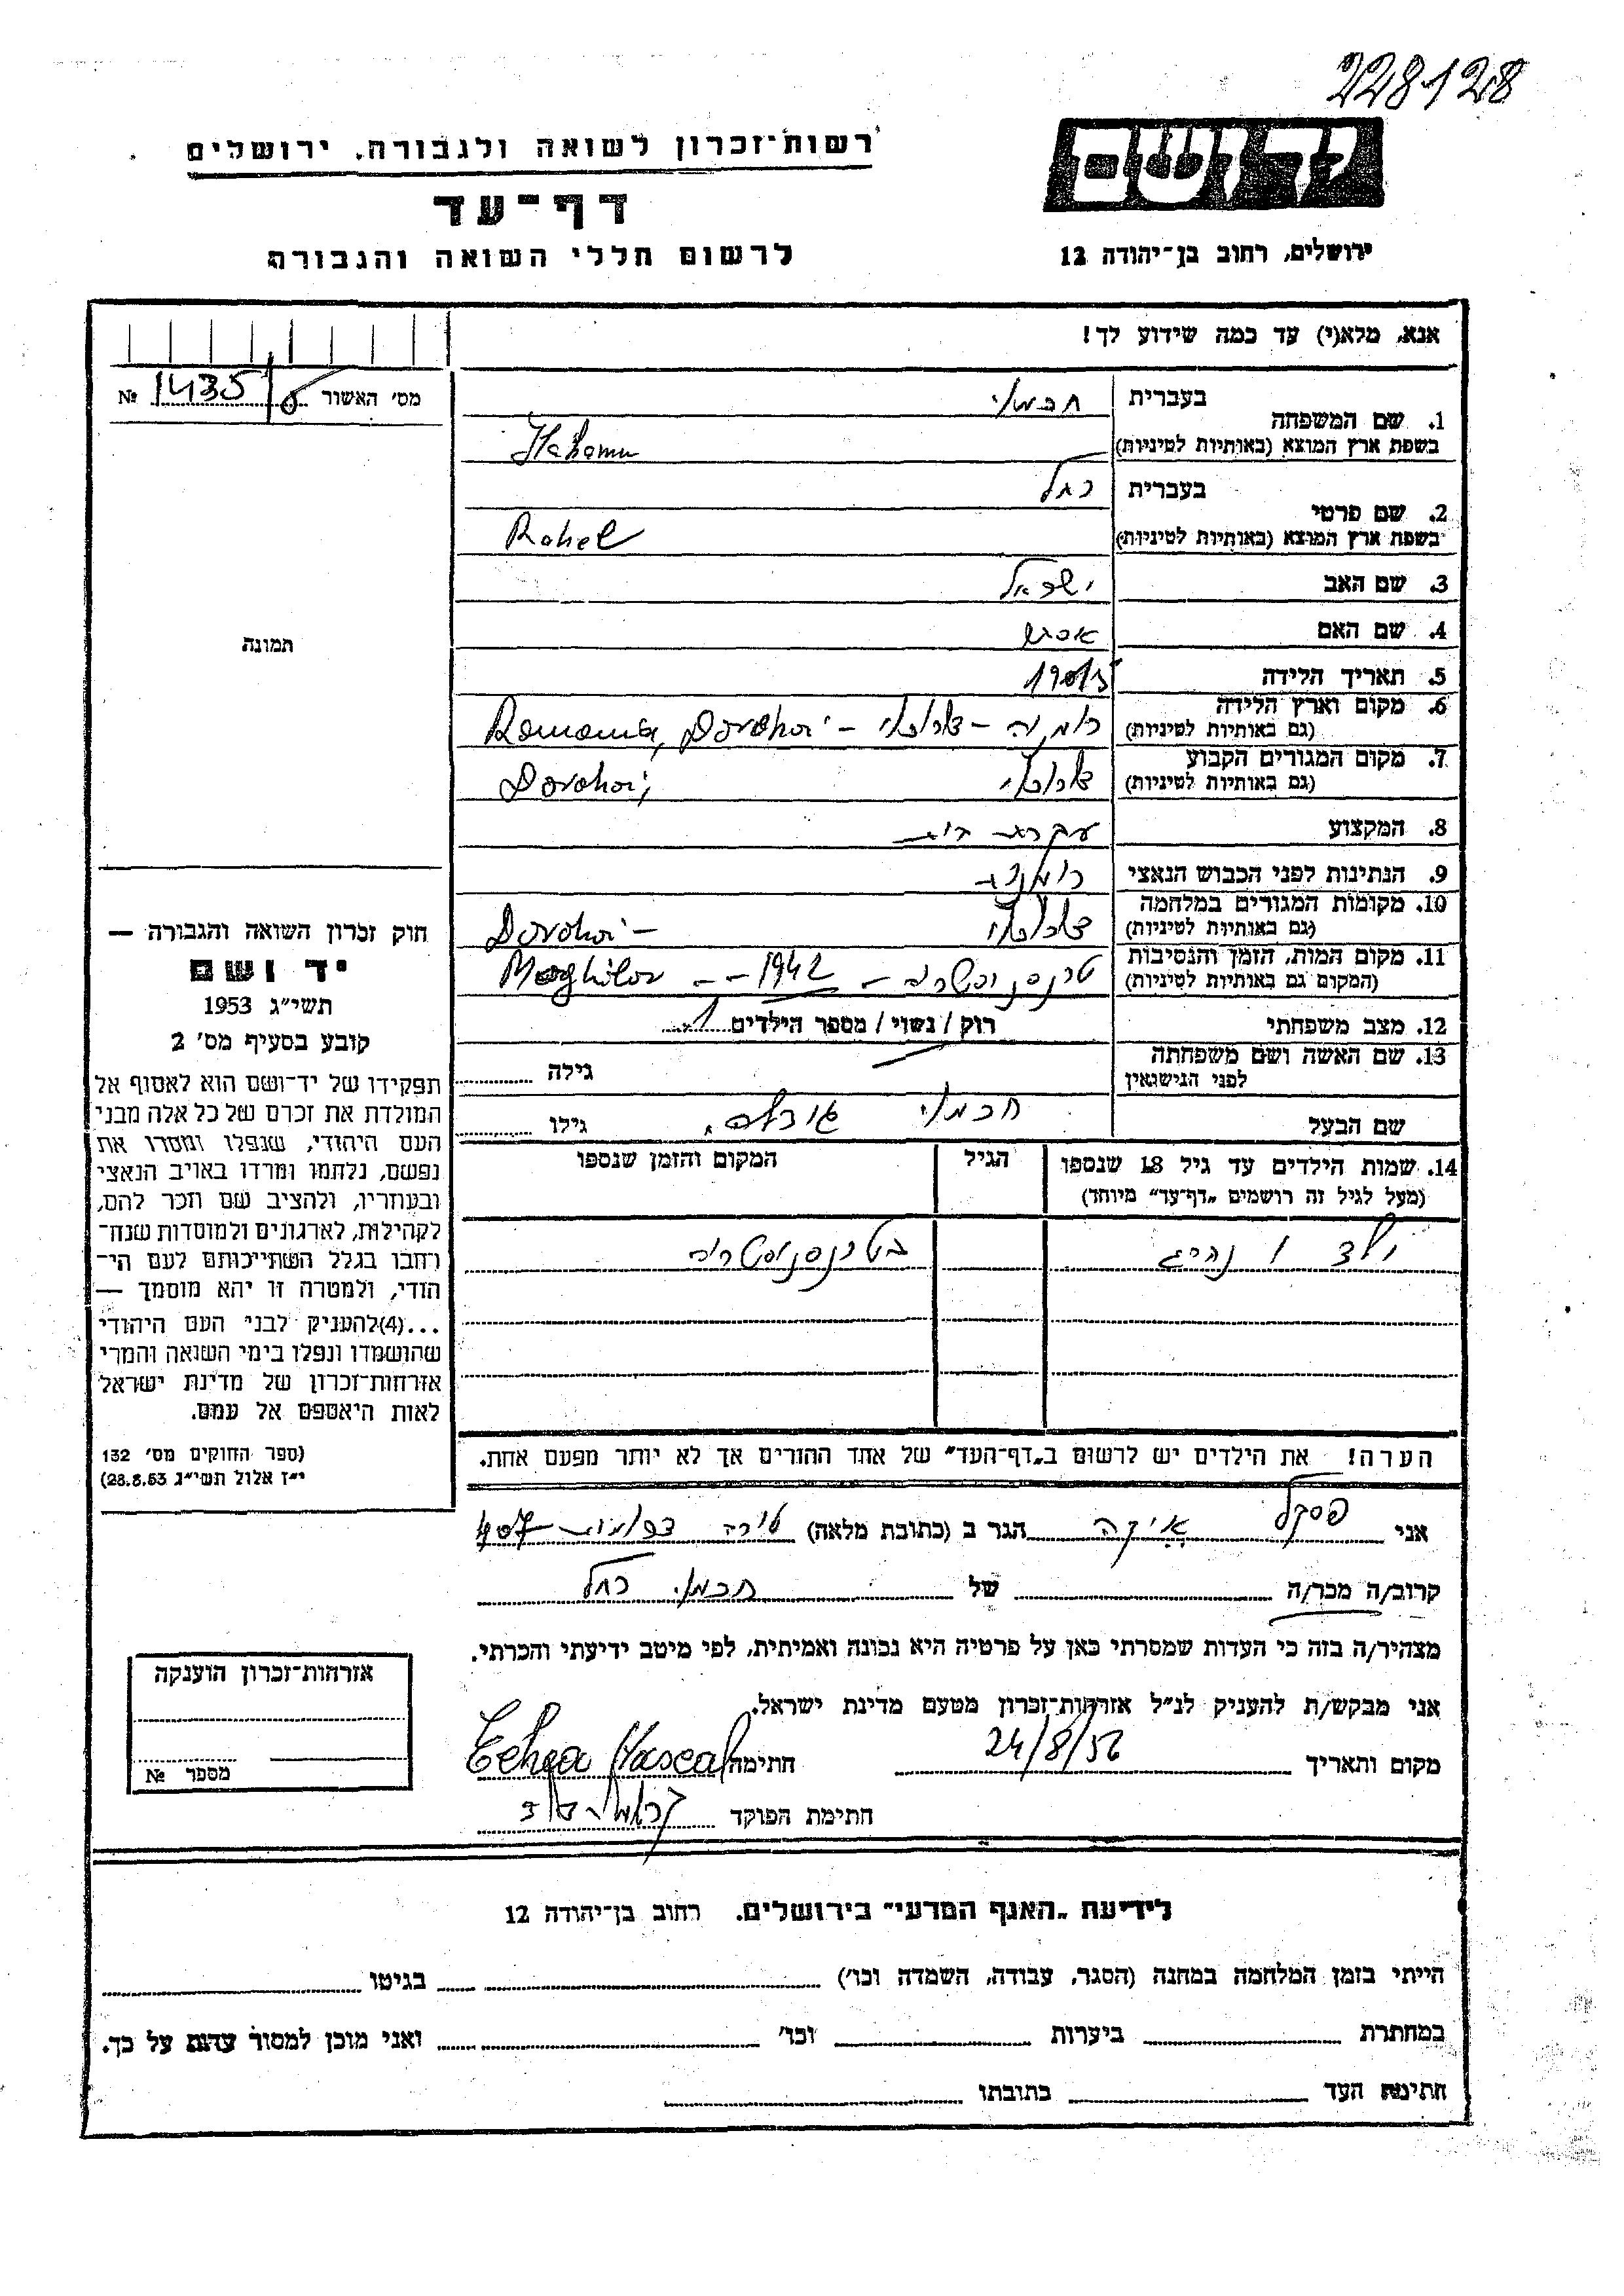 228128
רשות־זכרון לשואה ולגבורה, ירושלים
דף־עד
לרשום חללי השואה והגבורה
יד ושם
ירושלים, רחוב בן־יהודה 12
אנא, מלא(י) עד כמה שידוע לך!
מס' האשור 1435/ №
1. שם המשפחה בעברית
Hahamu
בשפת ארץ המוצא (באותיות לטיניות)
2. שם פרטי בעברית רחל
בשפת ארץ המוצא (באותיות לטיניות) Rahel
3. שם האב ישראל
4. שם האם
5. תאריך הלידה
6. מקום וארץ הלידה (גם באותיות לטיניות) רומניה – דורוהוי – Romania, Dorohoi
7. מקום המגורים הקבוע (גם באותיות לטיניות) דורוהוי Dorohoi,
8. המקצוע עקרת בית
9. הנתינות לפני הכבוש הנאצי רומנית
10. מקומות המגורים במלחמה (גם באותיות לטיניות) דורוהוי Dorohoi –
11. מקום המות, הזמן והנסיבות (המקום גם באותיות לטיניות) טרנסניסטריה – 1942 – – Moghilov
12. מצב משפחתי רוק / נשוי / מספר הילדים 1
13. שם האשה ושם משפחתה לפני הנישואין גילה
שם הבעל גילו
תמונה
14. שמות הילדים עד גיל 18 שנספו (מעל לגיל זה רושמים „דף־עד" מיוחד)
הגיל
המקום והזמן שנספו
ילד 1 נהרג בטרנסניסטריה
הערה! את הילדים יש לרשום ב„דף־העד" של אחד ההורים אך לא יותר מפעם אחת.
חוק זכרון השואה והגבורה —
יד ושם
תשי"ג 1953
קובע בסעיף מס' 2
תפקידו של יד־ושם הוא לאסוף אל
המולדת את זכרם של כל אלה מבני
העם היהודי, שנפלו ומסרו את
נפשם, נלחמו ומרדו באויב הנאצי
ובעוזריו, ולהציב שם וזכר להם,
לקהילות, לארגונים ולמוסדות שנח־
רבו בגלל השתייכותם לעם הי־
הודי, ולמטרה זו יהא מוסמך —
...(4) להעניק לבני העם היהודי
שהושמדו ונפלו בימי השואה והמרי
אזרחות־זכרון של מדינת ישראל
לאות היאספם אל עמם.
(ספר החוקים מס' 132
י"ז אלול תשי"ג 28.8.53)
אני פסקל איקה הגר ב (כתובת מלאה) טירה 407
קרוב/ה מכר/ה של רחל
מצהיר/ה בזה כי העדות שמסרתי כאן על פרטיה היא נכונה ואמיתית, לפי מיטב ידיעתי והכרתי.
אני מבקש/ת להעניק לנ"ל אזרחות־זכרון מטעם מדינת ישראל.
מקום ותאריך 24/8/56 חתימה
חתימת הפוקד
אזרחות־זכרון הוענקה
מספר №
לידיעת „האגף המדעי" בירושלים. רחוב בן־יהודה 12
הייתי בזמן המלחמה במחנה (הסגר, עבודה, השמדה וכו') בגיטו
במחתרת ביערות וכו' ואני מוכן למסור עדות על כך.
חתימת העד כתובתו